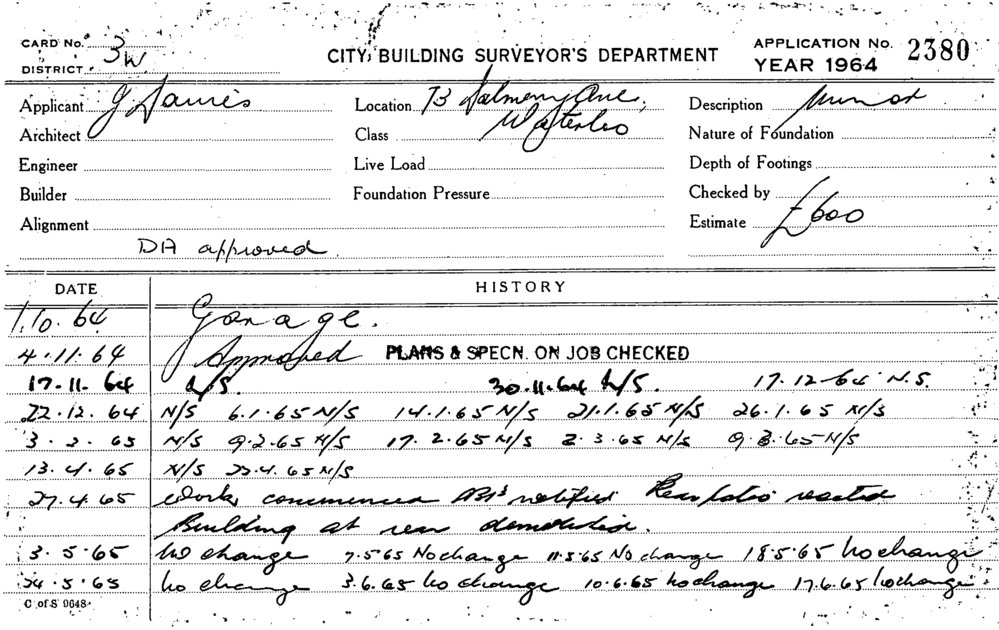 CARD No. 3W
CITY BUILDING SURVEYOR'S DEPARTMENT
APPLICATION No. 2380
DISTRICT
YEAR 1964
Applicant G Location 73 Dalmeny Ave, Description Minor
Architect Class Waterloo Nature of Foundation
Engineer Live Load Depth of Footings
Builder Foundation Pressure Checked by
Alignment Estimate £600
DA approved
DATE HISTORY
1.10.64 Garage.
4.11.64 Approved PLANS & SPECN. ON JOB CHECKED
17.11.64 N/S. 30.11.64 N/S. 17.12.64 N.S.
22.12.64 N/S 6.1.65 N/S 14.1.65 N/S 21.1.65 N/S 26.1.65 N/S
3.2.65 N/S 9.2.65 N/S 17.2.65 N/S 2.3.65 N/S 9.3.65 N/S
13.4.65 N/S 22.4.65 N/S
27.4.65 Work commenced notified Rear
Building at rear demolished.
3.5.65 No change 7.5.65 No change 11.5.65 No change 18.5.65 No change
24.5.65 No change 3.6.65 No change 10.6.65 No change 17.6.65 No change
C of S 9648